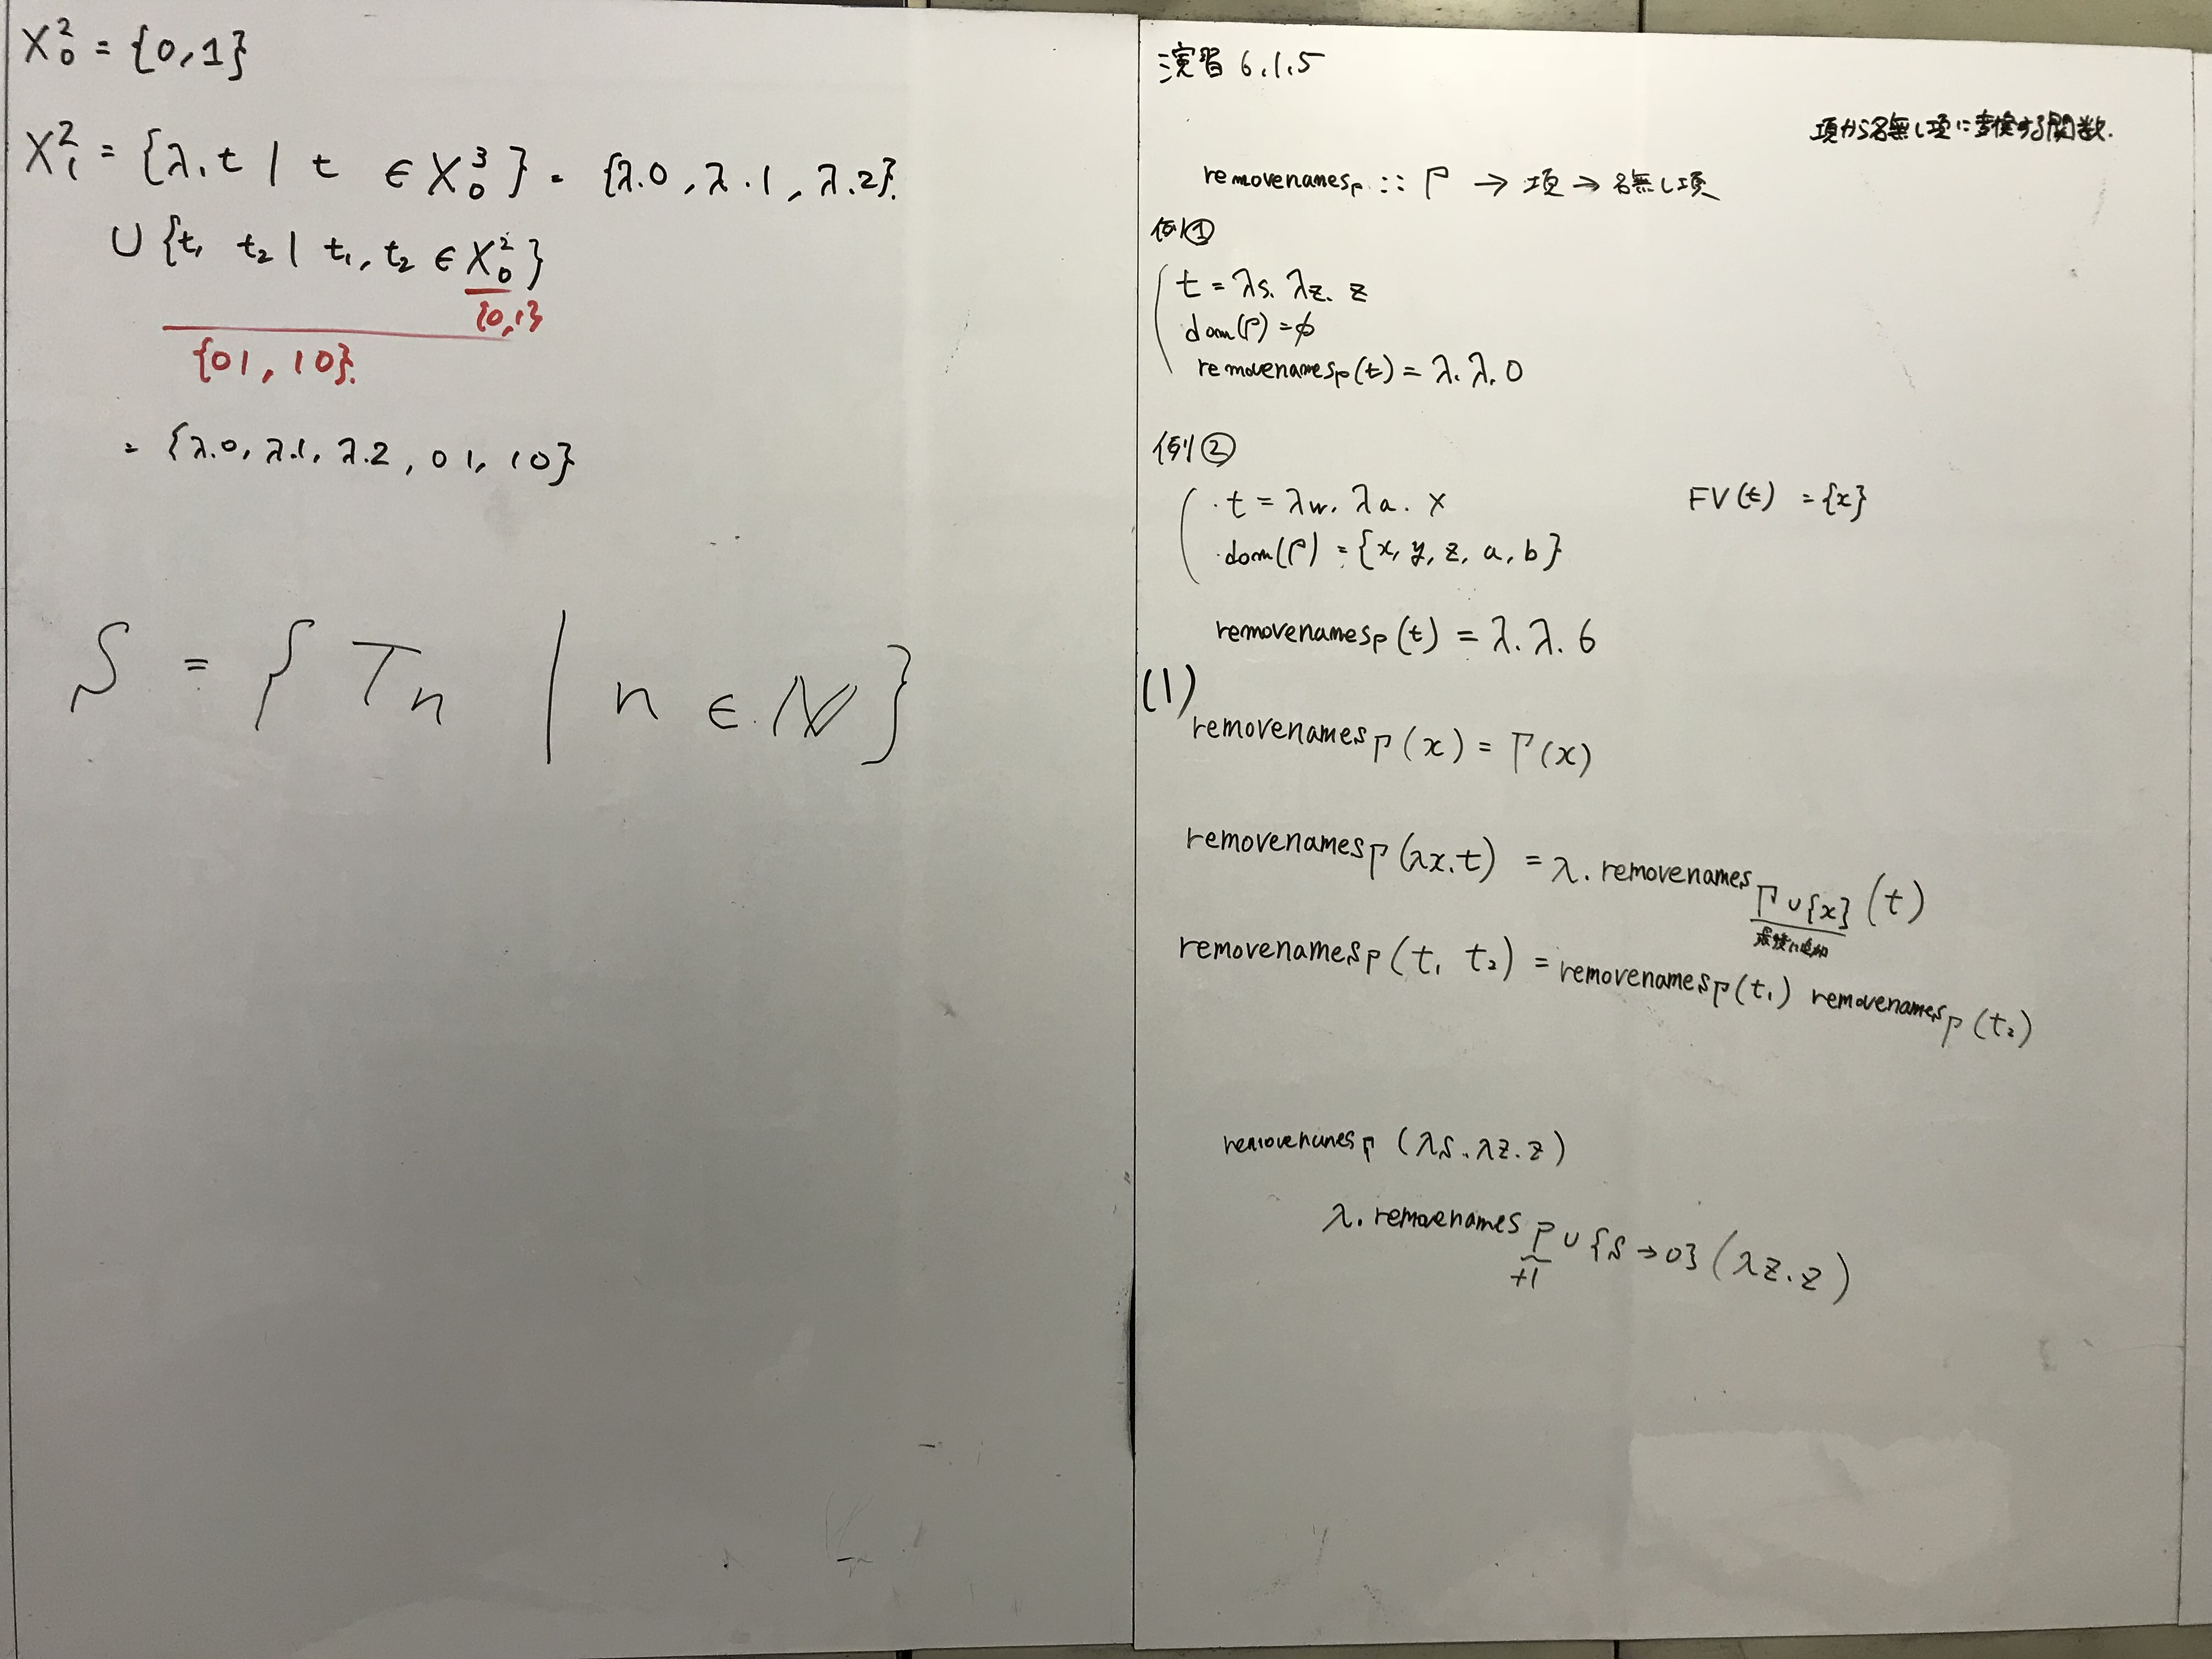 X²₀ = {0, 1}
X²₁ = {λ.t | t ∈ X³₀} = {λ.0, λ.1, λ.2}.
∪ {t₁ t₂ | t₁, t₂ ∈ X²₀}
{0, 1}
{0 1, 1 0}.
= {λ.0, λ.1, λ.2, 0 1, 1 0}
S = {Tn | n ∈ ℕ}
演習 6.1.5
項から名無し項に変換する関数.
removenames_Γ :: Γ → 項 → 名無し項
例①
t = λs. λz. z
dom(Γ) = φ
removenames_Γ(t) = λ. λ. 0
例②
・t = λw. λa. x
FV(t) = {x}
・dom(Γ) = {x, y, z, a, b}
removenames_Γ(t) = λ. λ. 6
(1)
removenames_Γ(x) = Γ(x)
removenames_Γ(λx.t) = λ. removenames_Γ∪{x} (t)
最後に追加
removenames_Γ(t₁ t₂) = removenames_Γ(t₁) removenames_Γ(t₂)
removenames_Γ (λs.λz.z)
λ. removenames_Γ ∪ {s → 0} (λz.z)
+1